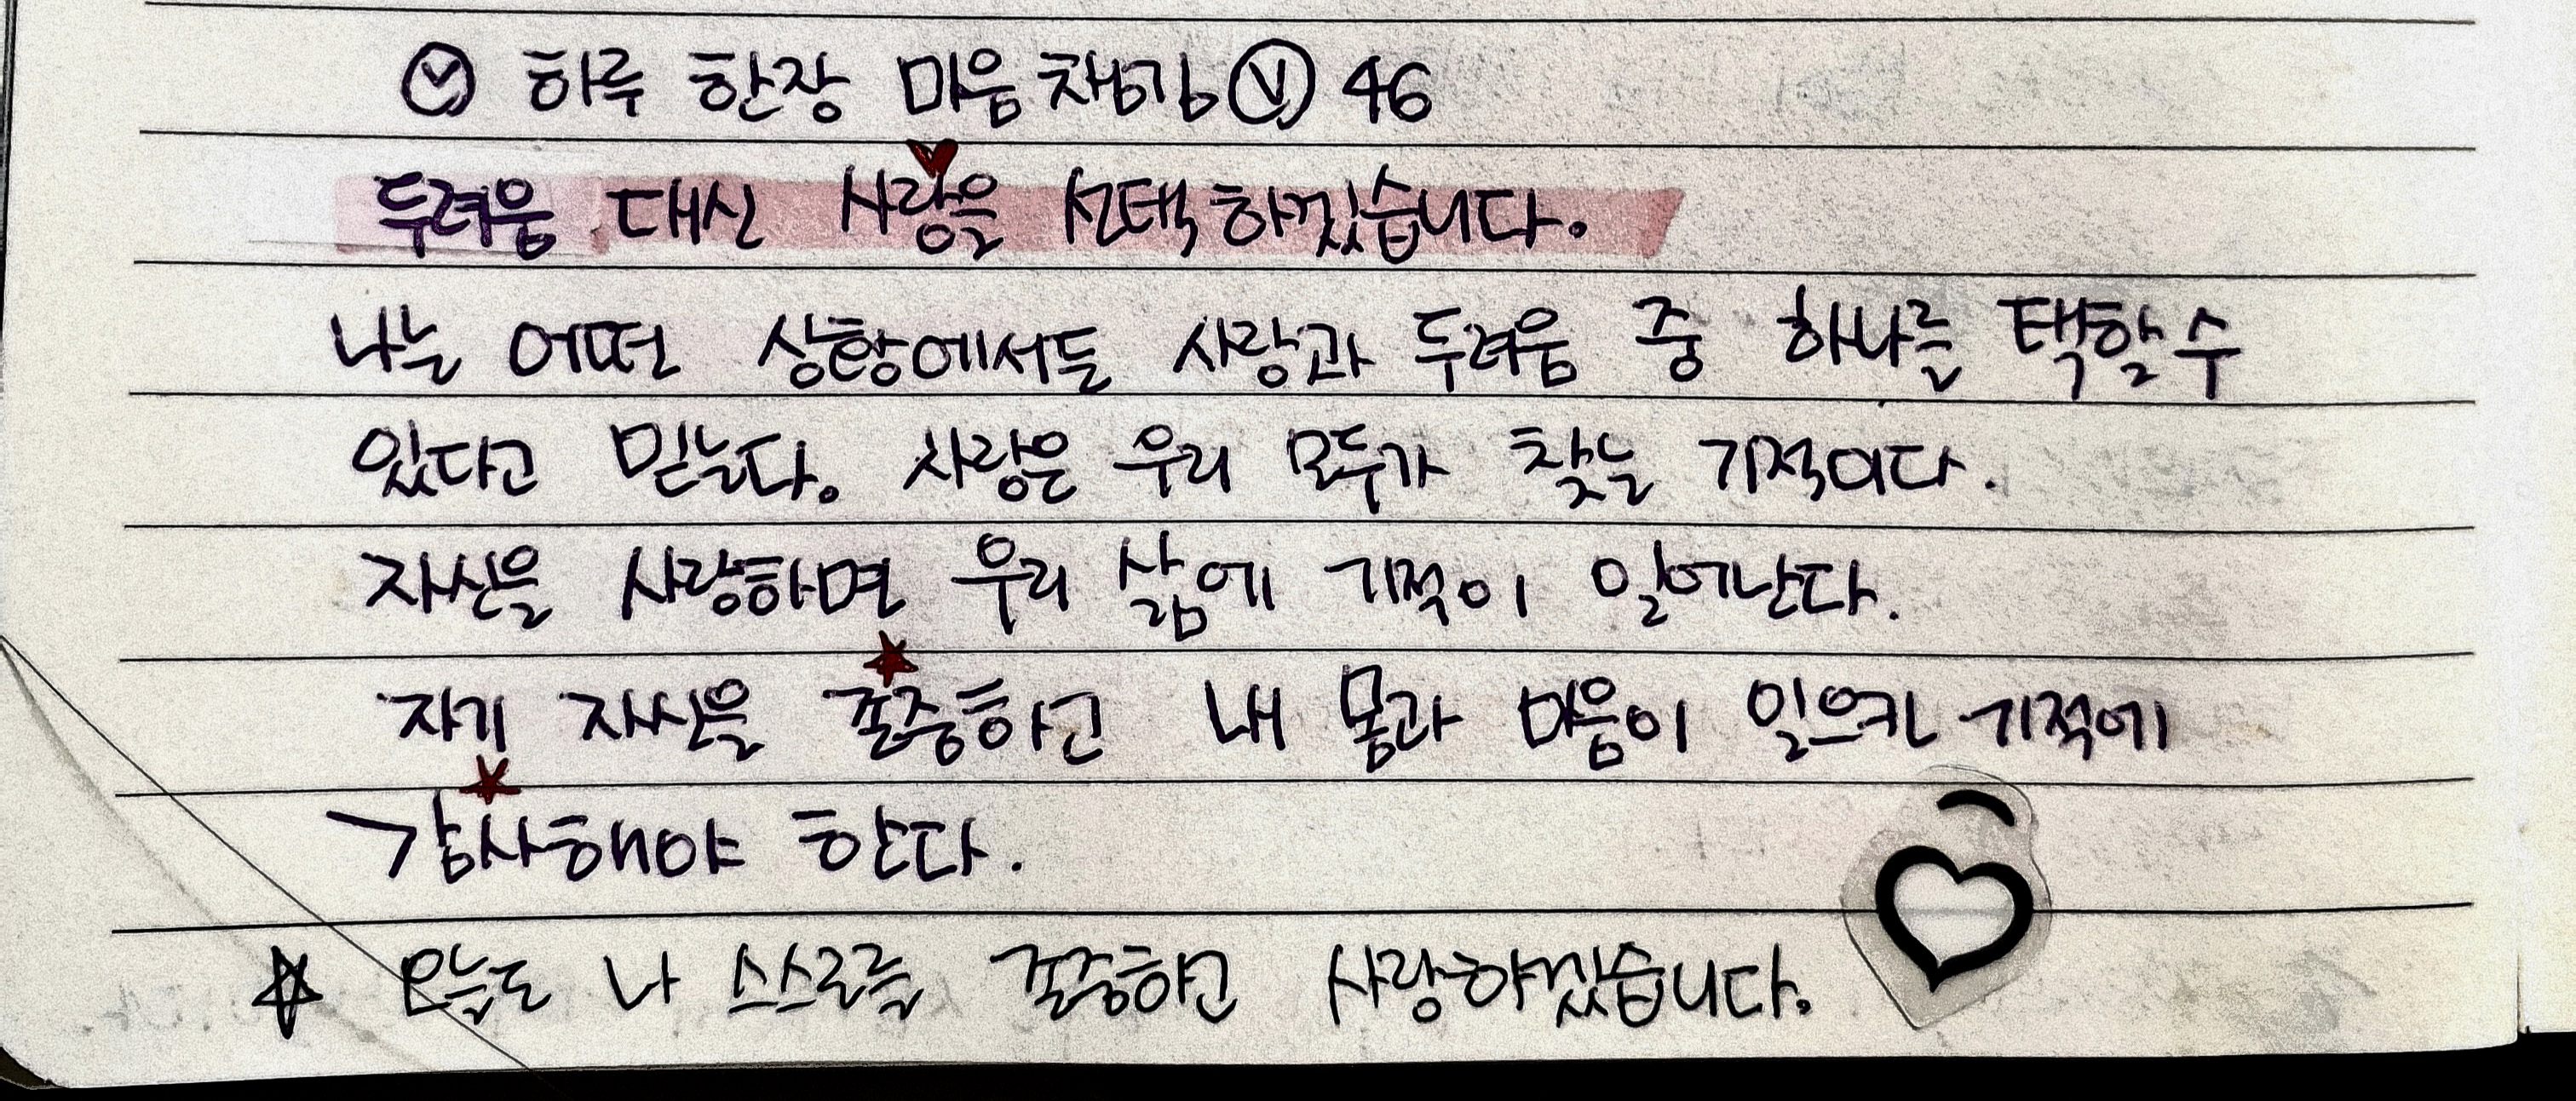 하루 한장 마음챙김 46
두려움 대신 사랑을 선택하겠습니다.
나는 어떤 상황에서든 사랑과 두려움 중 하나를 택할 수
있다고 믿는다. 사랑은 우리 모두가 찾는 기적이다.
자신을 사랑하면 우리 삶에 기적이 일어난다.
자기 자신을 존중하고 내 몸과 마음이 일으킨 기적에
감사해야 한다.
오늘도 나 스스로를 존중하고 사랑하겠습니다.